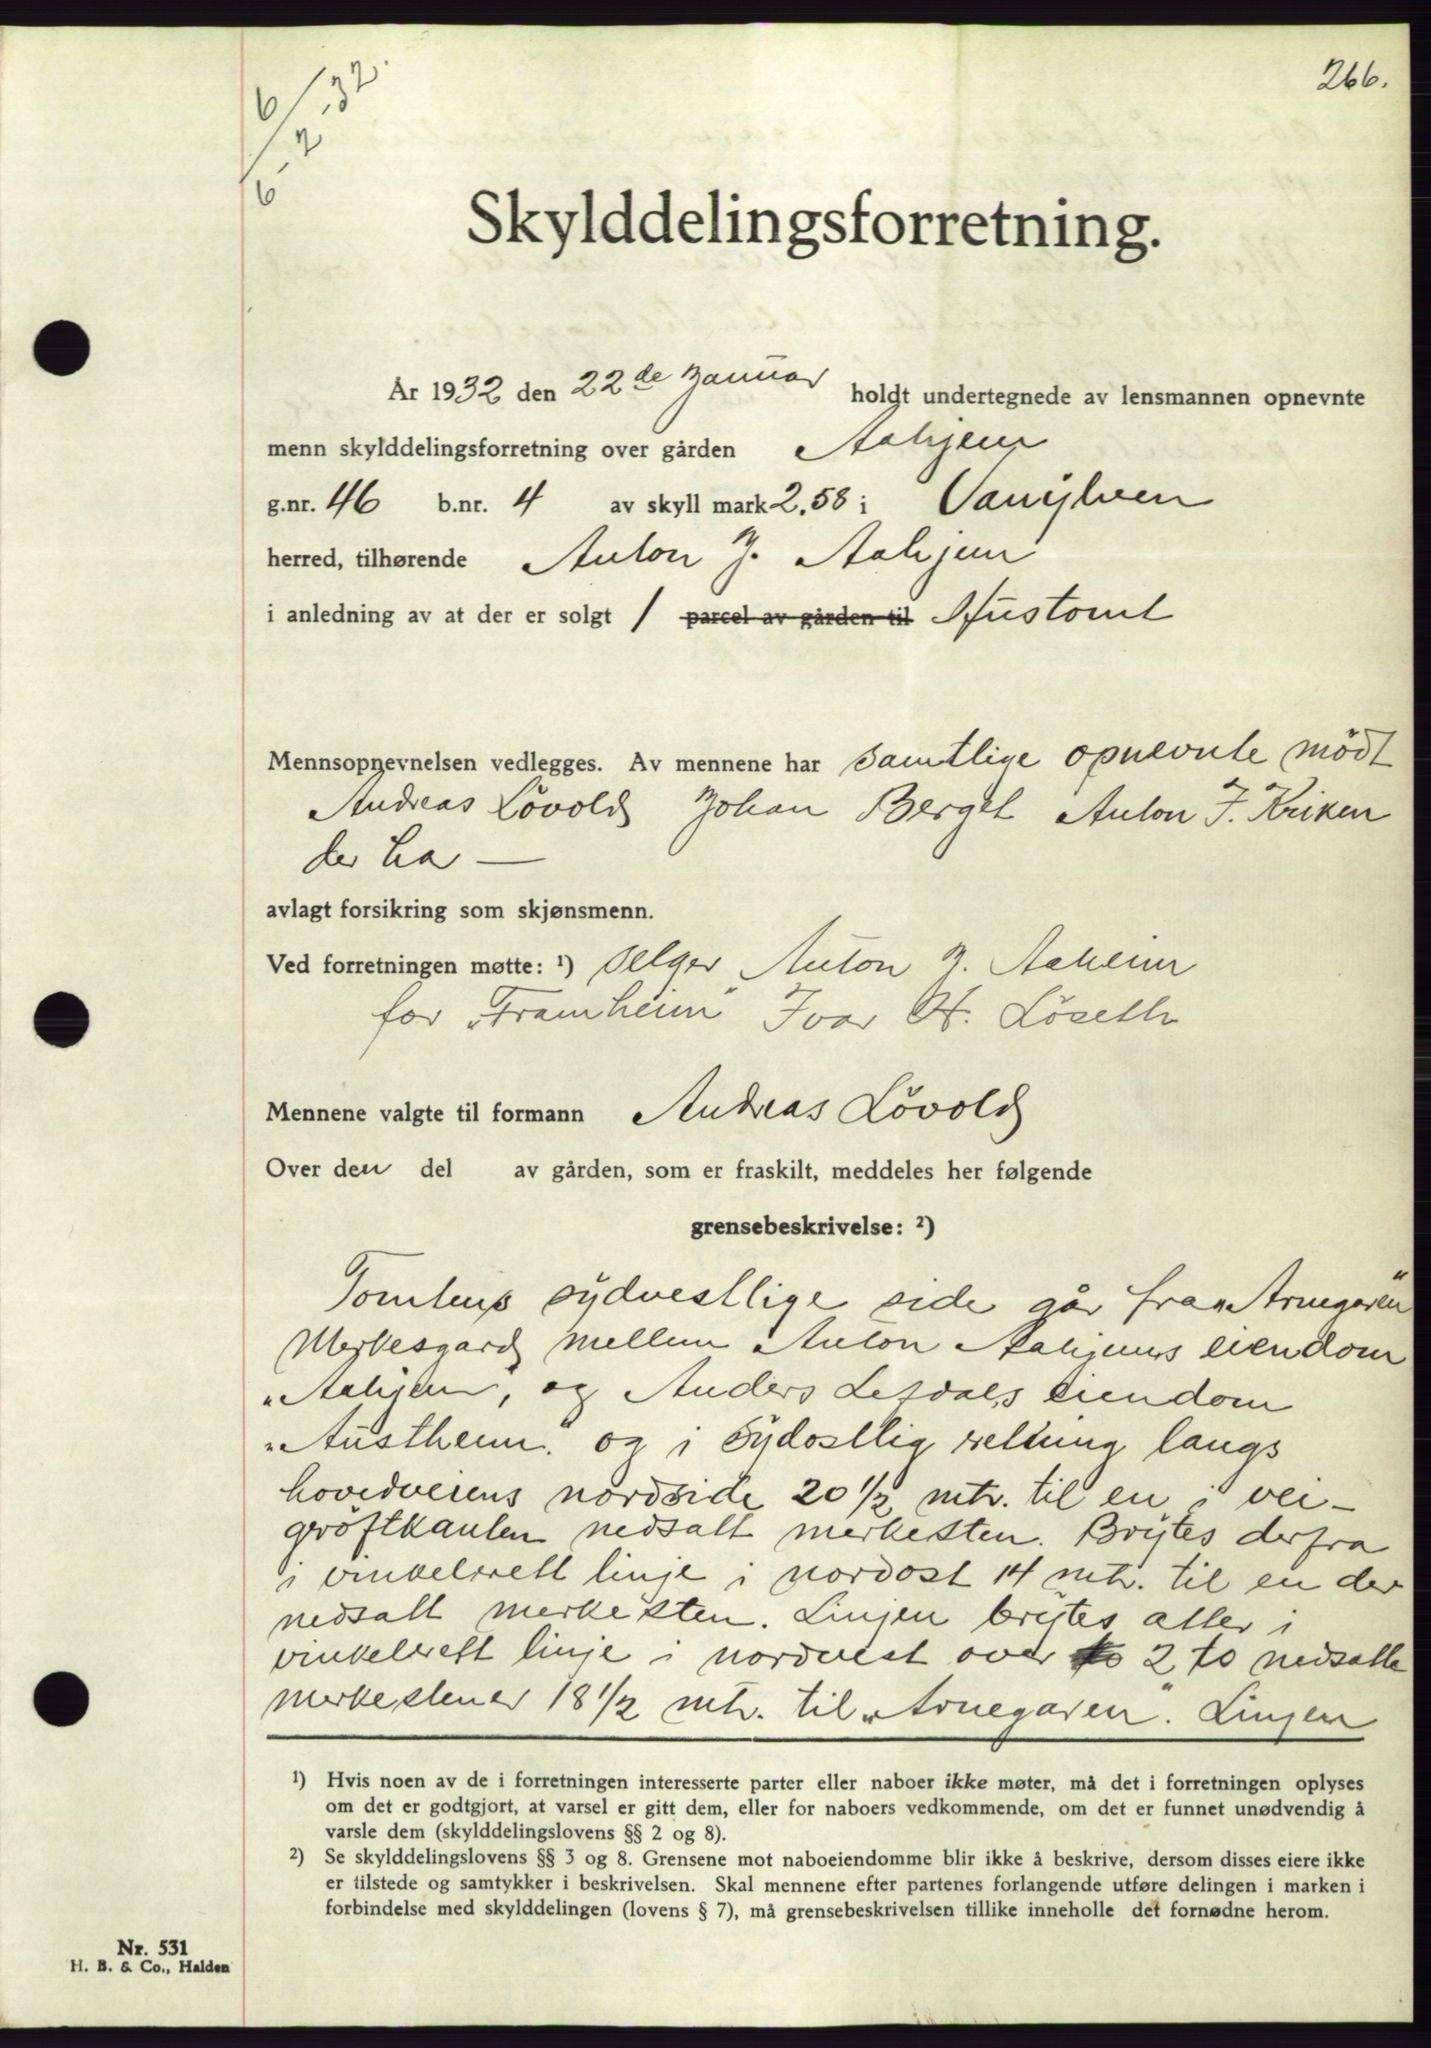 266.
6/32.
2
6
Skylddelingsforretning.
År 1932 den 22 de Januar holdt undertegnede av lensmannen opnevnte
menn skylddelingsforretning over gården Aahjem
g.nr. 46 b.nr. 4 av skyll mark 2.58 i Vanylven
herred, tilhørende Anton J. Aahjem
i anledning av at der er solgt 1 parcel av gården til Hustomt
Mennsopnevnelsen vedlegges. Av mennene har samtlige opnevnte mödt
Andreas Lövold Johan Berget Anton J. Kriken
der ha —
avlagt forsikring som skjønsmenn.
Ved forretningen møtte: ¹) Selger Anton J. Aaheim
for „Framheim" Ivar H. Löseth
Mennene valgte til formann Andreas Lövold
Over den del av gården, som er fraskilt, meddeles her følgende
grensebeskrivelse: ²)
Tomtens sydvestlige side går fra „Arnegaren"
Merkesgard mellem Anton Aahjems eiendom
„Aahjem", og Anders eiendom
„Austheim." og i Sydostlig rettning langs
hovedveiens nordside 20 1/2 mtr. til en i vei-
gröftkanten nedsatt merkesten. Brytes derfra
i vinkelrett linje i nordost 14 mtr. til en der
nedsatt merkesten. Linjen brytes atter i
vinkelrett linje i nordvest over to 2 to nedsatte
merkestener 18 1/2 mtr. til „Arnegaren". Linjen
¹) Hvis noen av de i forretningen interesserte parter eller naboer ikke møter, må det i forretningen oplyses
om det er godtgjort, at varsel er gitt dem, eller for naboers vedkommende, om det er funnet unødvendig å
varsle dem (skylddelingslovens §§ 2 og 8).
²) Se skylddelingslovens §§ 3 og 8. Grensene mot naboeiendomme blir ikke å beskrive, dersom disses eiere ikke
er tilstede og samtykker i beskrivelsen. Skal mennene efter partenes forlangende utføre delingen i marken i
forbindelse med skylddelingen (lovens § 7), må grensebeskrivelsen tillike inneholle det fornødne herom.
Nr. 531
H. B. & Co., Halden